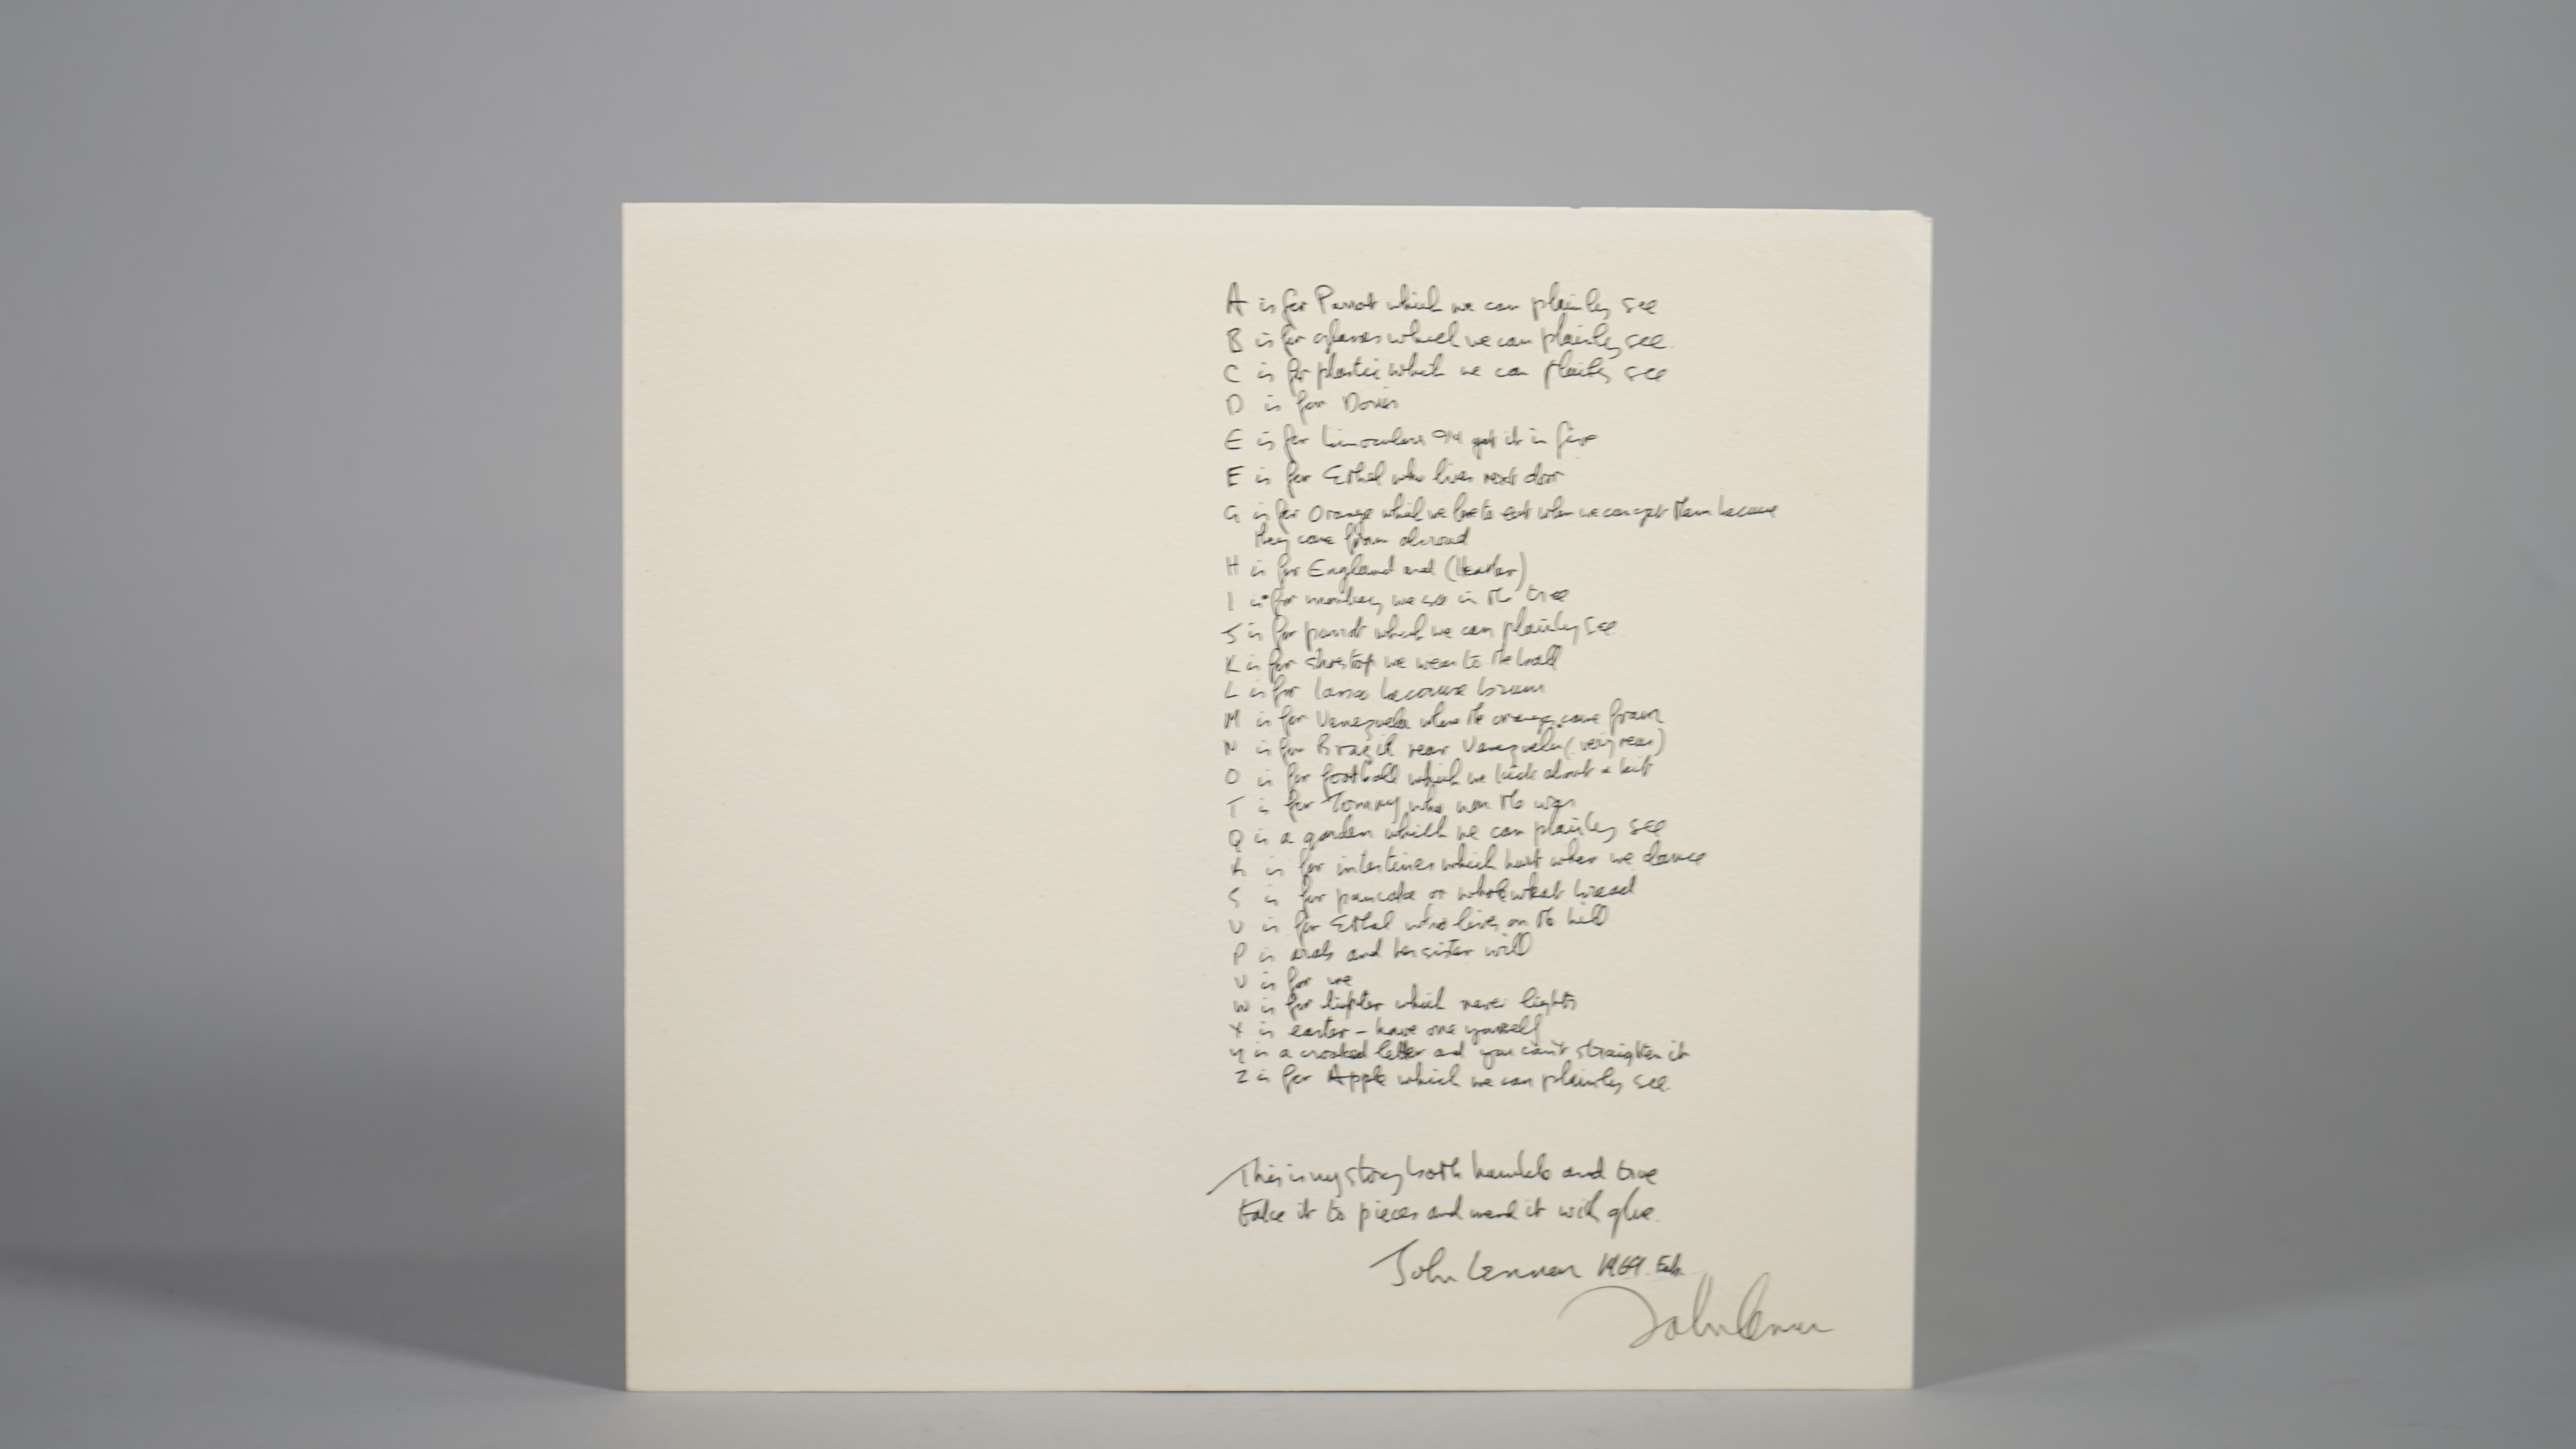 A is for Parrot which we can plainly see
B is for glasses which we can plainly see.
C is for plastic which we can plainly see
D is for Doris
E is for binoculars I'll get it in five
E is for Ethel who lives next door
G is for Orange which we love to eat when we can get them because
they come from abroad
H is for England and (Heather)
I is for monkey we see in the tree
J is for parrot which we can plainly see
K is for shoestop we wear to the ball
L is for because brown
M is for Venezuela where the oranges come from
N is for Brazil near Venezuela (very near)
O is for football which we kick about a bit
T is for Tommy who won the war
Q is a garden which we can plainly see
R is for intestines which hurt when we dance
S is for pancake or whole wheat bread
U is for Ethel who lives on the hill
P is arab and her sister will
U is for me
W is for lighter which never lights
X is easter - have one yourself
Y is a crooked letter and you can't straighten it
Z is for Apple which we can plainly see.
This is my story both humble and true
take it to pieces and mend it with glue.
John Lennon 1969. Feb.
John Lennon